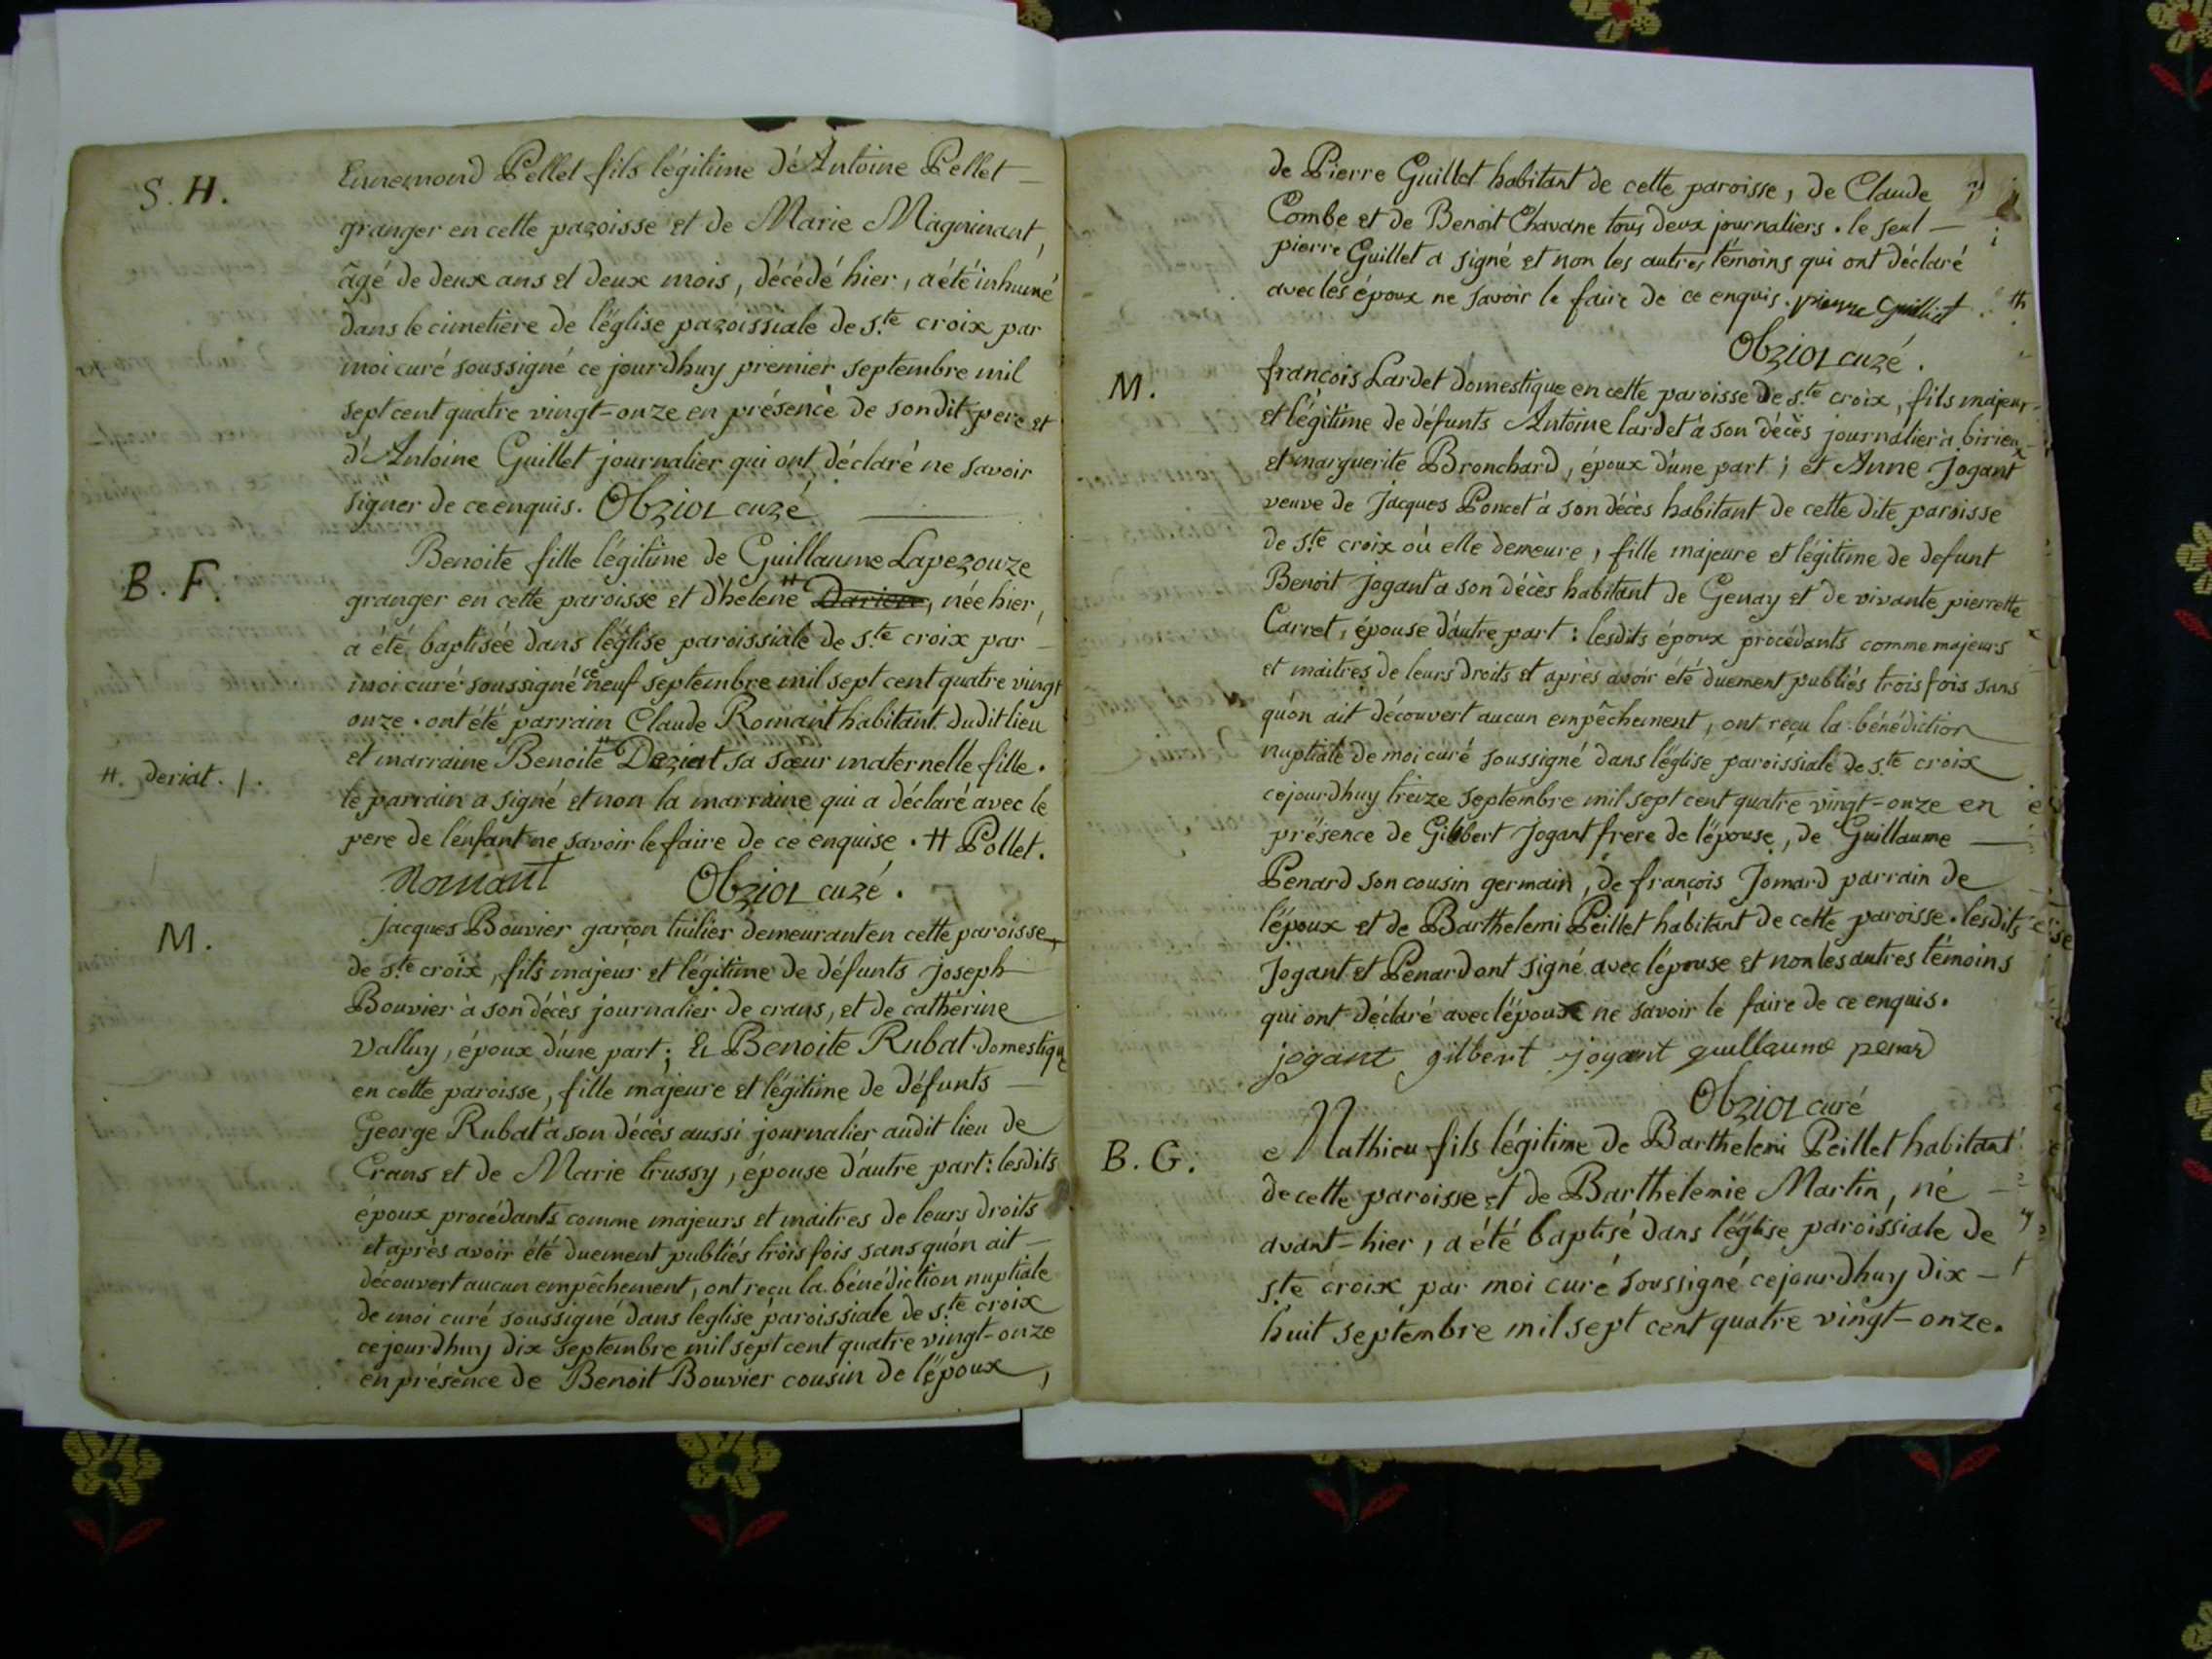 S. H.
Ennemond Pellet fils légitime d'Antoine Pellet
granger en cette paroisse et de Marie Magninant,
âgé de deux ans et deux mois, décédé hier, a été inhumé
dans le cimetiere de l'église paroissiale de s.te croix par
moi curé soussigné ce jourdhuy premier septembre mil
sept cent quatre vingt-onze en présence de sondit pere et
d'Antoine Guillet journalier qui ont déclaré ne savoir
signer de ce enquis. Obrior curé
B. F.
Benoite fille légitime de Guillaume Laperouze
granger en cette paroisse et d'héléne # Dariere, née hier,
a été baptisée dans l'église paroissiale de s.te croix par
moi curé soussigné ce neuf septembre mil sept cent quatre vingt
onze. ont été parrain Claude Romant habitant dudit lieu
et marraine Benoite # Deriat sa sœur maternelle fille.
#. deriat. /.
le parrain a signé et non la marraine qui a déclaré avec le
pere de l'enfant ne savoir le faire de ce enquise. # Pollet.
Romant Obrior curé.
M.
Jacques Bouvier garçon tuilier demeurant en cette paroisse
de s.te croix, fils majeur et légitime de défunts Joseph
Bouvier à son décès journalier de crans, et de cathérine
Valluy, époux d'une part; Et Benoite Rubat domestique
en cette paroisse, fille majeure et légitime de défunts
George Rubat à son décès aussi journalier audit lieu de
Crans et de Marie trussy, épouse d'autre part: lesdits
époux procédants comme majeurs et maitres de leurs droits
et après avoir été duement publiés trois fois sans qu'on ait
découvert aucun empêchement, ont reçu la bénédiction nuptiale
de moi curé soussigné dans l'église paroissiale de s.te croix
cejourdhuy dix septembre mil sept cent quatre vingt-onze
en présence de Benoit Bouvier cousin de l'époux,
de Pierre Guillet habitant de cette paroisse, de Claude
Combe et de Benoit Chavane tous deux journaliers. le seul
pierre Guillet a signé et non les autres témoins qui ont déclaré
avec les époux ne savoir le faire de ce enquis. pierre Guilliet
Obrior curé.
M.
françois Lardet domestique en cette paroisse de s.te croix, fils majeur
et légitime de défunts Antoine lardet à son décès journalier à birieux
et marguerite Bronchard, époux d'une part; et Anne Jogant
veuve de Jacques Poncet à son décès habitant de cette dite paroisse
de s.te croix où elle demeure, fille majeure et légitime de defunt
Benoit Jogant à son décès habitant de Genay et de vivante pierrette
Carret, épouse d'autre part: lesdits époux procédants comme majeurs
et maitres de leurs droits et après avoir été duement publiés trois fois sans
qu'on ait découvert aucun empêchement, ont reçu la bénédiction
nuptiale de moi curé soussigné dans l'église paroissiale de s.te croix
cejourdhuy treize septembre mil sept cent quatre vingt-onze en
présence de Gilbert Jogant frere de l'épouse, de Guillaume
Penard son cousin germain, de françois Jomard parrain de
l'époux et de Barthelemi Peillet habitant de cette paroisse. lesdits
Jogant et Penard ont signé avec l'épouse et non les autres témoins
qui ont déclaré avec l'époux ne savoir le faire de ce enquis.
jogant gilbert jogant guillaume penar
Obrior curé
B. G.
Mathieu fils légitime de Barthelemi Peillet habitant
de cette paroisse et de Barthelemie Martin, né
avant-hier, a été baptisé dans l'église paroissiale de
s.te croix par moi curé soussigné cejourdhuy dix-
huit septembre mil sept cent quatre vingt-onze.